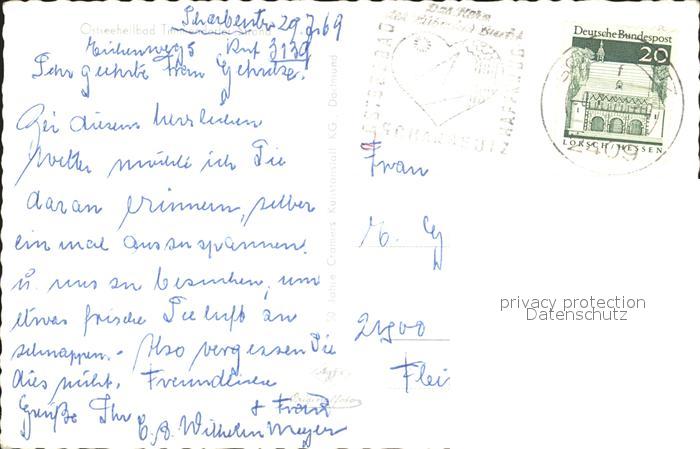 Ostseeheilbad
Scharbeutz 29.7.69
Eichenweg 5 Ruf 3139
Sehr geehrte Frau
Bei diesem herrlichen
Wetter möchte ich Sie
daran erinnern, selber
einmal auszuspannen
u. uns zu besuchen, um
etwas frische Seeluft zu
schnappen.- Also vergessen Sie
dies nicht. Freundliche
Grüße Ihr
& Frau
Wilhelm Meyer
50 Jahre Cramers Kunstanstalt Dortmund
Deutsche Bundespost
20
LORSCH/HESSEN
2409
Frau
privacy protection
Datenschutz